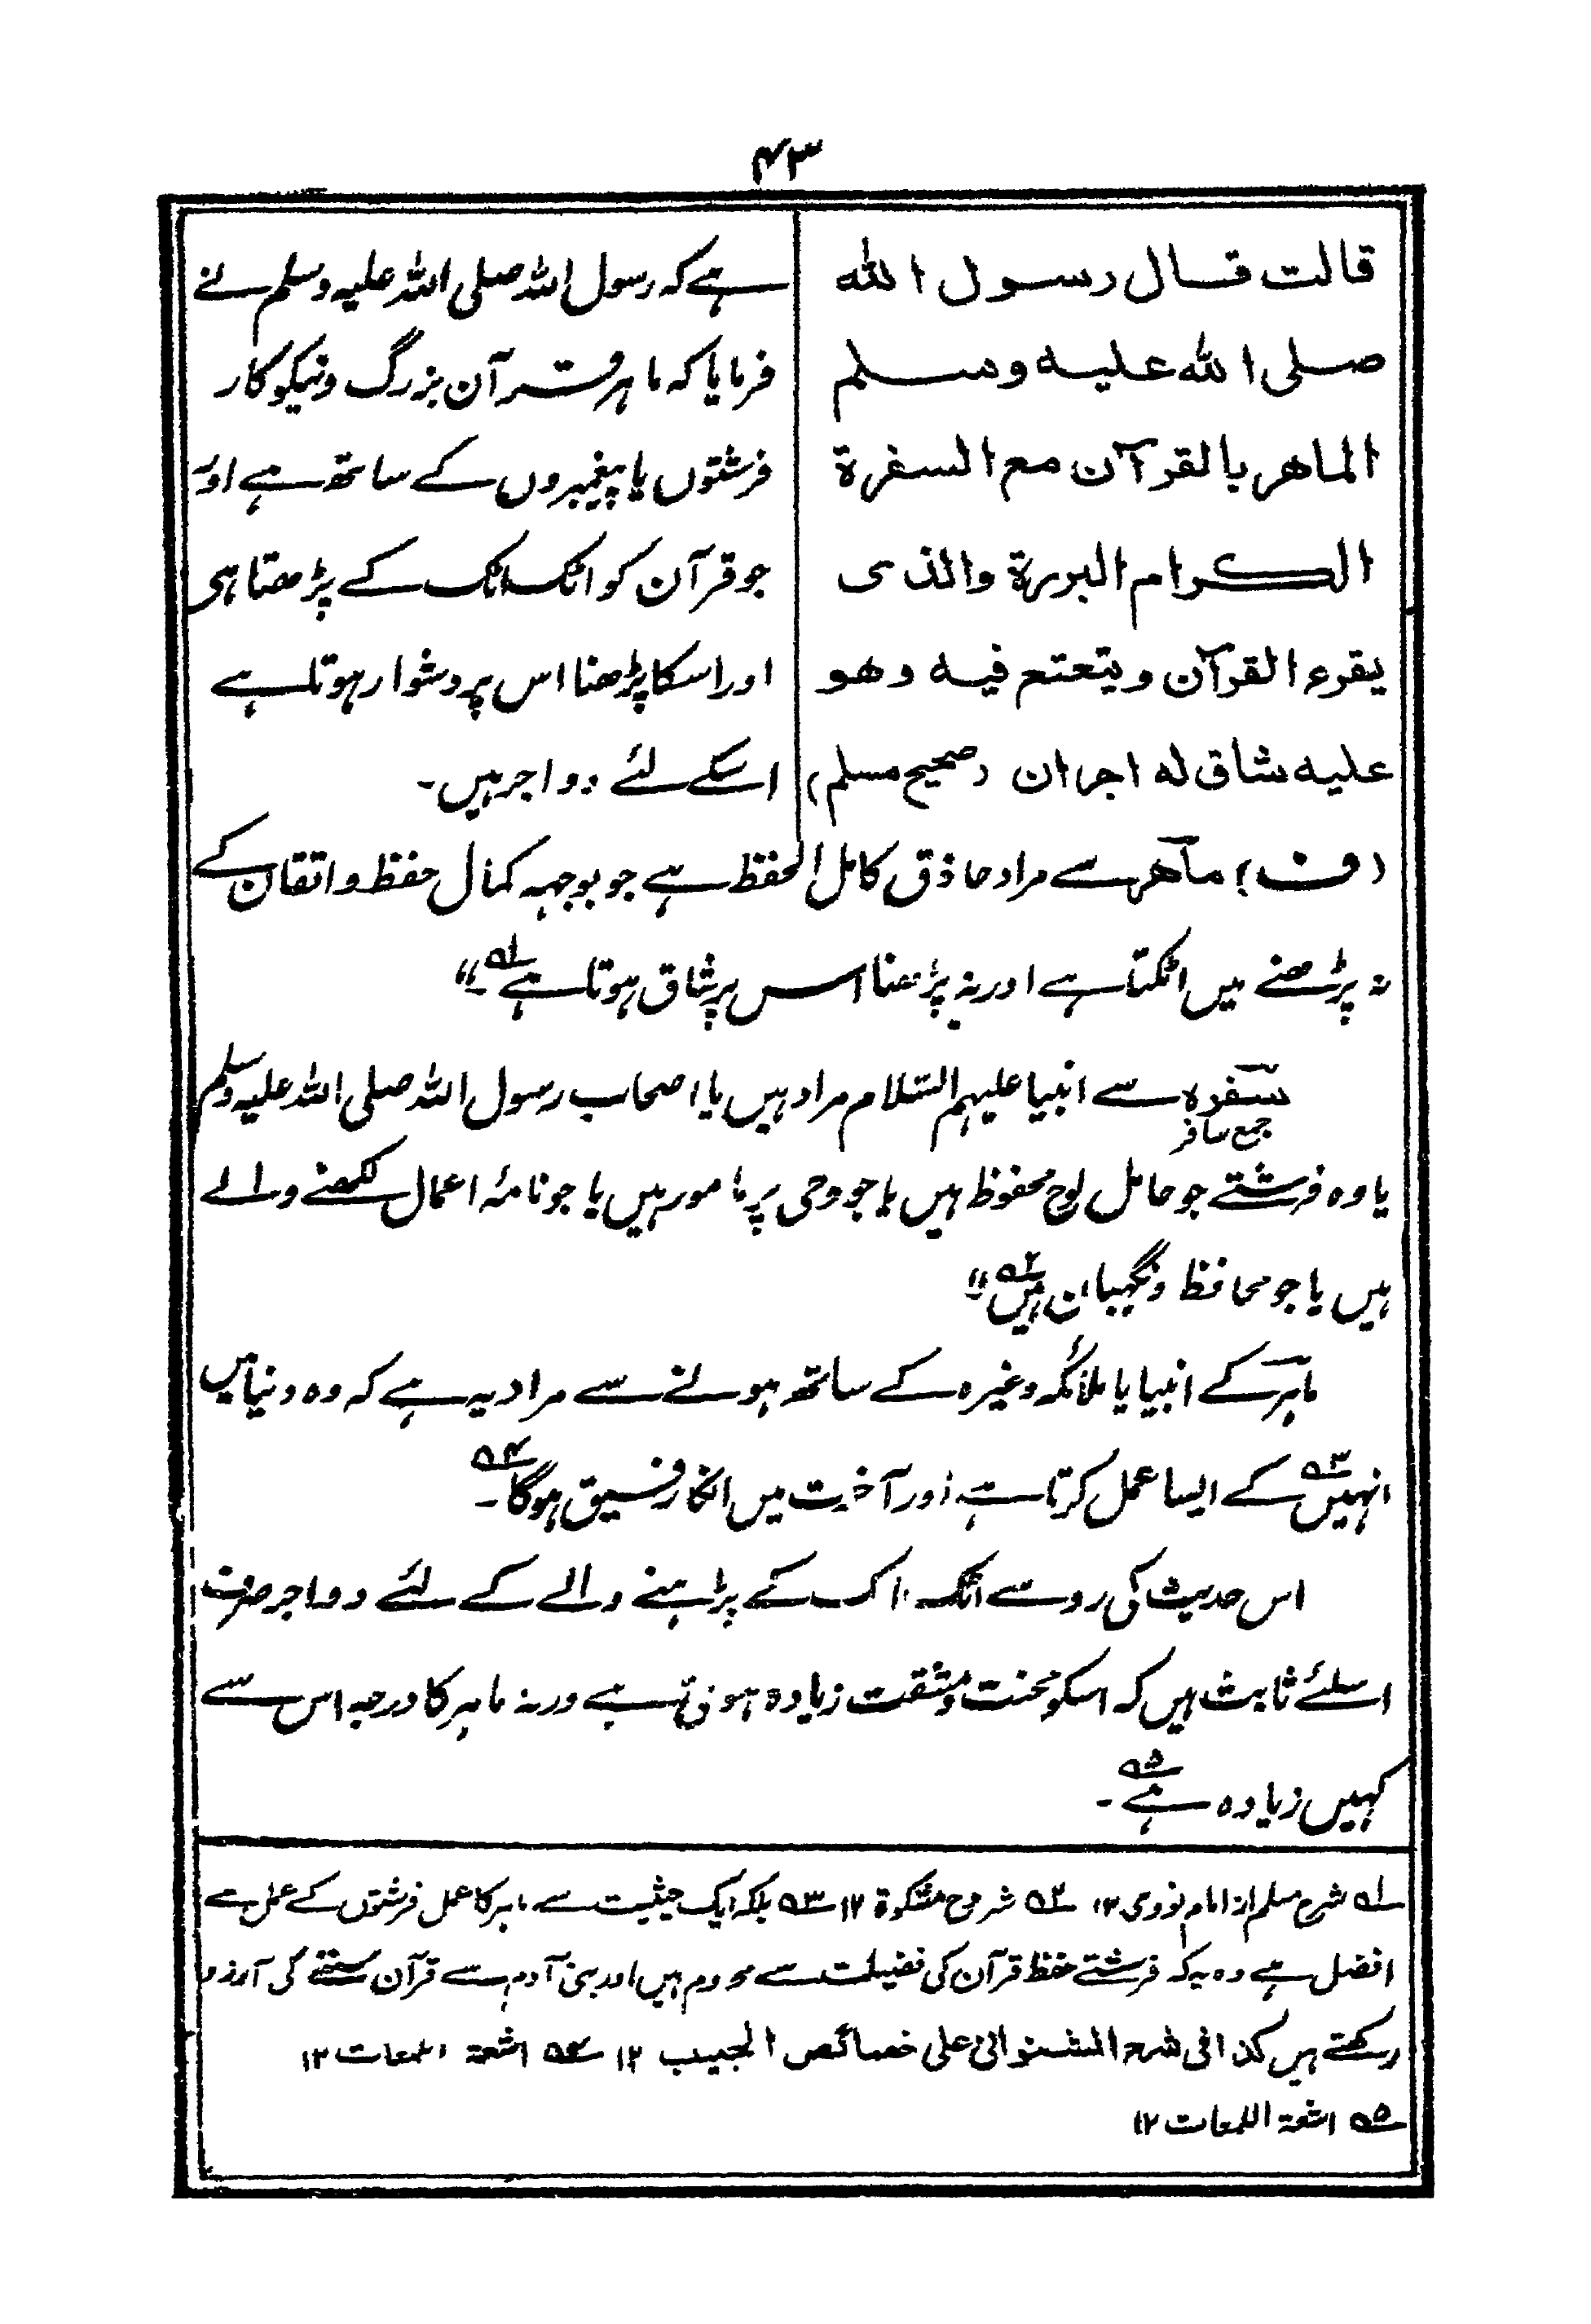 ۴۳
قالت قال رسول الله
صلی الله علیه وسلم
الماهر بالقرآن مع السفرة
الکرام البررة والذی
یقرء القرآن ویتعتع فیه وهو
علیه شاق له اجران (صحیح مسلم)
ہے کہ رسول اللہ صلی اللہ علیہ وسلم نے
فرمایا کہ ماہر قرآن بزرگ ونیکوکار
فرشتوں یا پیغمبروں کے ساتھ ہے اور
جو قرآن کو اٹک اٹک کے پڑھتا ہی
اور اسکا پڑھنا اس پر دشوار ہوتا ہے
اسکے لئے دو اجر ہیں۔
(ف) ماہر سے مراد حاذق کامل الحفظ ہے جو بوجہہ کمال حفظ و اتقان کے
نہ پڑھنے میں اٹکتا ہے اور نہ پڑھنا اس پر شاق ہوتا ہے ۱؎ ۔"
سفرہ سے انبیا علیہم السلام مراد ہیں یا اصحاب رسول اللہ صلی اللہ علیہ وسلم
جمع سافر
یا وہ فرشتے جو حامل لوح محفوظ ہیں یا جو وحی پر مامور ہیں یا جو نامۂ اعمال لکھنے والے
ہیں یا جو محافظ ونگہبان ہیں ۲؎ ۔"
ماہر کے انبیا یا ملائکہ وغیرہ کے ساتھ ہونے سے مراد یہ ہے کہ وہ دنیا میں
انہیں ۳؎ کے ایسا عمل کرتا ہے اور آخرت میں انکا رفیق ہوگا ۴؎ ۔
اس حدیث کی رو سے اٹک اٹک کے پڑہنے والے کے لئے دو اجر صرف
اسلئے ثابت ہیں کہ اسکو محنت ومشقت زیادہ ہوتی ہے ورنہ ماہر کا درجہ اس سے
کہیں زیادہ ہے ۵؎ ۔
۱؎ شرح مسلم از امام نووی ۱۲ ۲؎ شروح مشکوۃ ۱۲ ۳؎ بلکہ ایک حیثیت سے ماہر کا عمل فرشتوں کے عمل سے
افضل ہے وہ یہ کہ فرشتے حفظ قرآن کی فضیلت سے محروم ہیں اور بنی آدم سے قرآن سننے کی آرزو
رکھتے ہیں کذا فی شرح الشنوانی علی خصائص الحبیب ۱۲ ۴؎ اشعۃ اللمعات ۱۲
۵؎ اشعۃ اللمعات ۱۲